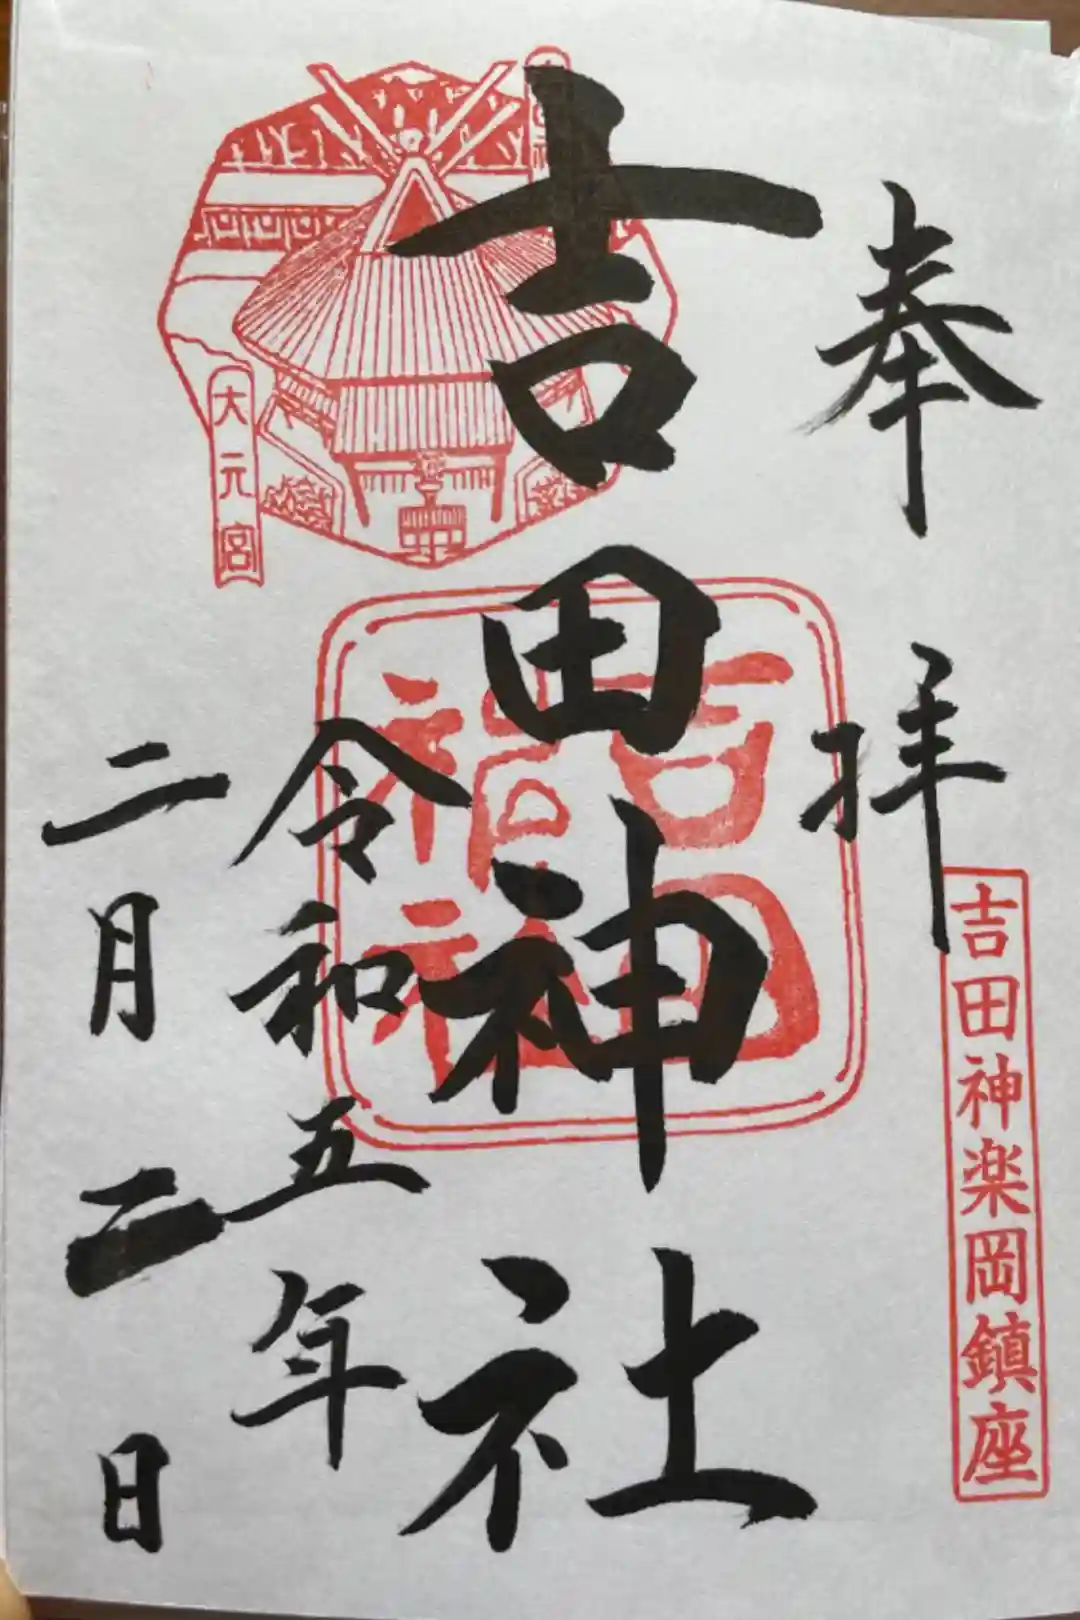 奉拝
吉田神楽岡鎮座
吉田神社
吉田神社
令和五年
二月二日
大元宮